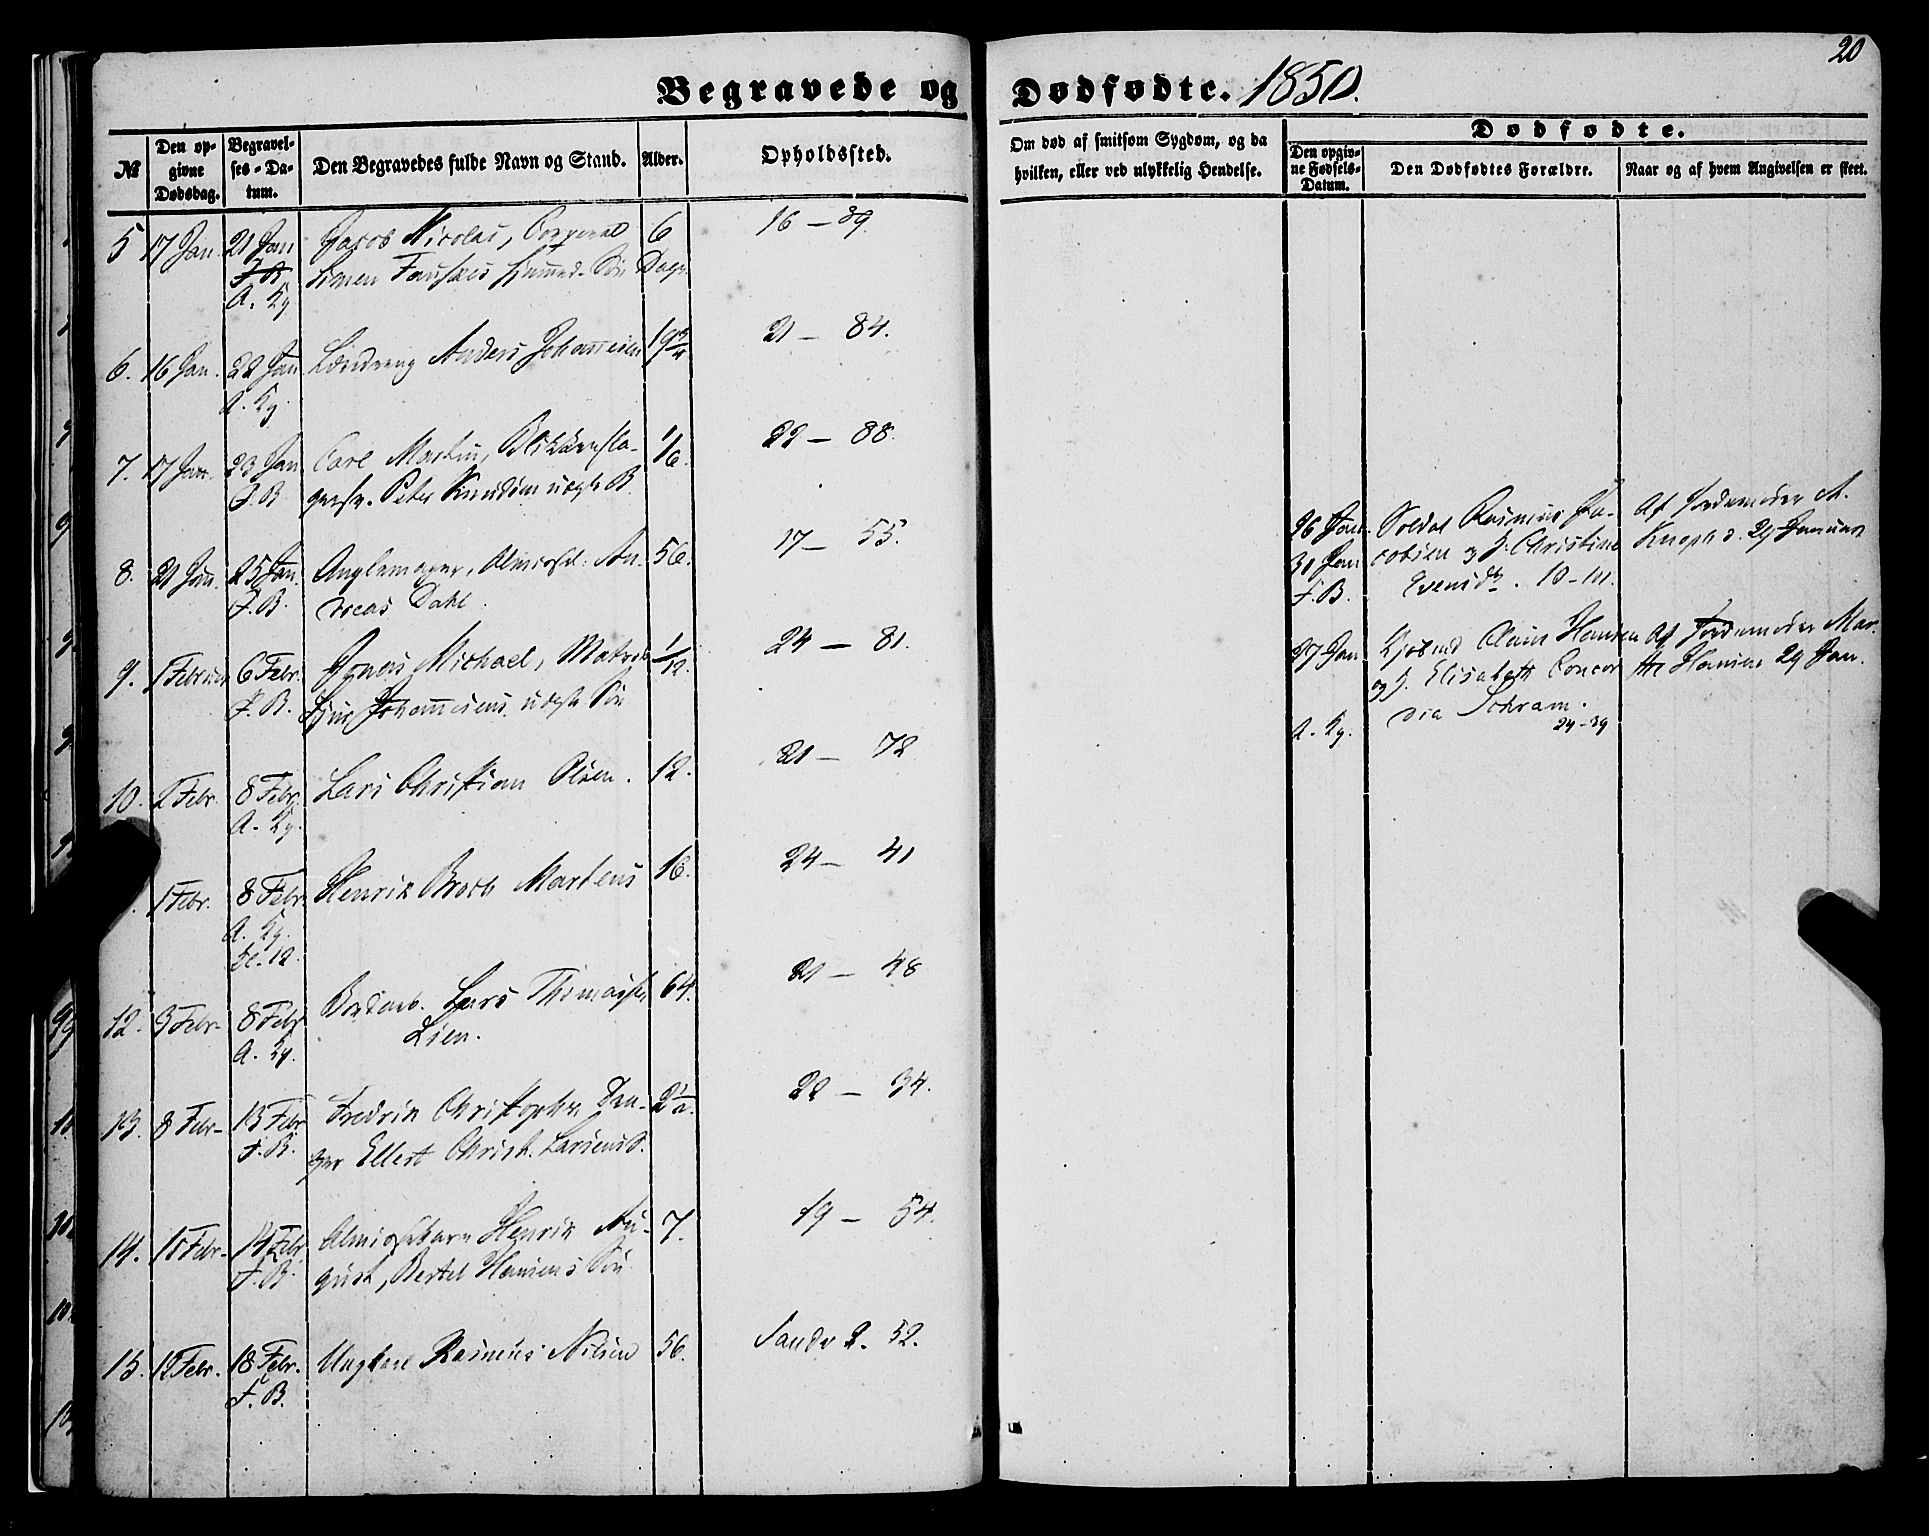 20
Begravede og Dødfødte. 1850.
№
Den opgivne Dødsdag.
Begravelses-Datum.
Den Begravedes fulde Navn og Stand.
Alder.
Opholdssted.
Om død af smitsom Sygdom, og da hvilken, eller ved ulykkelig Hendelse.
Dødfødte.
Den opgivne Fødsels-Datum.
Den Dødfødtes Forældre.
Naar og af hvem Angivelsen er skeet.
5 17 Jan. 21 Jan Jacob Nicolai, Corporal 6 16 – 39
F. B. Simen Søn Dage
A. Kg
6. 16 Jan. 22 Jan Læredreng Anders Johannesen 19 3/4 21 – 84.
A. Kg.
7. 17 Jan. 23 Jan Carl Martin, Blikkensla- 1/6. 22 – 88.
F. B. gersv. Peter Knudsens uægte B.
8. 21 Jan. 25 Jan. Anglemager, Almissel. An- 56. 17 – 55.
F. B. dreas Dahl.
9. 1 Februar 6 Febr. Michael, Matros 1/12. 24 – 81.
F. B. Johannesens uægte Søn
10. 2 Febr. 8 Febr. Lars Christian Olsen. 12. 21 – 72
A. Kg.
1 Febr. 8 Febr. Henrik Broch Martens 16. 24 – 41
A. Kg.
Kl. 12.
12. 3 Febr. 8 Febr. Lars Thomassen 64. 21 – 48
A. Kg. Lien.
13. 8 Febr. 13 Febr. Fredrik Christopher, 2 1/2. 22 – 34.
F. B. Ellert Christ. Larsens S.
14. 10 Febr. 14 Febr Almissebarn Henrik Au- 7. 19 – 54.
F. B. gust, Bertel Hansens Søn
15. 12 Febr. 18 Febr. Ungkarl Rasmus Nilsen 56. Sandv 2. 52.
F. B.
26 Jan. Soldat Rasmus Ja- Af Jordemoder M.
31 Jan cobsen og H. Christine Knoph d. 29 Januar
F. B. Evensdtr. 10 – 111.
27 Jan Kjøbmd Claus Hansen Af Jordemoder Mar-
og H. Elisabeth Concor- the Hansen 29 Jan.
dia Schram.
A. Kg. 24 – 39